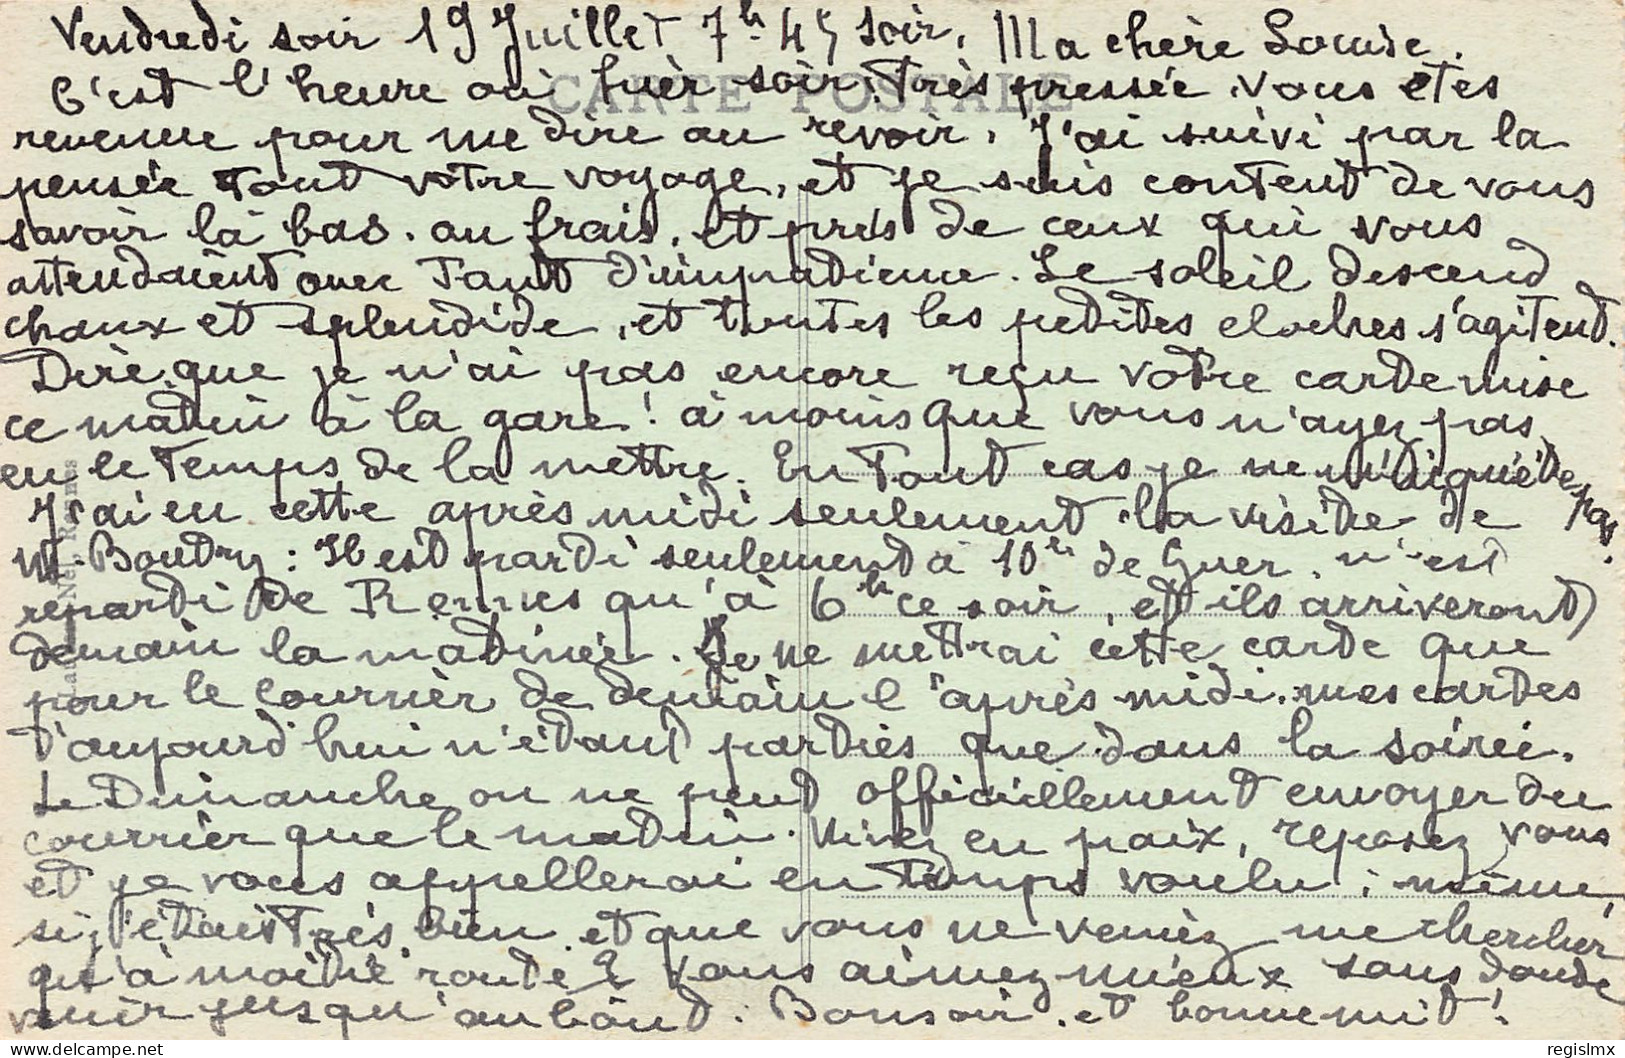 Vendredi soir 19 Juillet 7h 45 soir. Ma chère Louise.
C'est l'heure où hier soir. Très pressée. Vous etes
CARTE POSTALE
revenue pour me dire au revoir. J'ai suivi par la
pensée tout votre voyage, et je suis content de vous
savoir là bas. au frais, et près de ceux qui vous
attendaient avec tant d'impatience. Le soleil descend
chaux et splendide, et toutes les petites cloches s'agitent.
Dire que je n'ai pas encore reçu votre carte mise
ce matin à la gare! à moins que vous n'ayez pas
eu le temps de la mettre. En tout cas je ne m'inquiète pas.
J'ai eu cette après midi seulement la visite de
M. Boudry: Il est parti seulement à 10h de Guer, n'est
reparti de Rennes qu'à 6h ce soir, et ils arriveront
demain la matinée. Je ne mettrai cette carte que
pour le courrier de demain l'après midi. mes cartes
d'aujourd'hui n'étant parties que dans la soirée.
Le Dimanche on ne peut officiellement envoyer du
courrier que le matin. Vivez en paix, reposez vous
et je vous appellerai en temps voulu; même,
si j'étais très bien et que vous ne veniez me chercher
qu'à moitié route? Vous aimez mieux sans doute
venir jusqu'au bout. Bonsoir. et bonne nuit!
regislmx